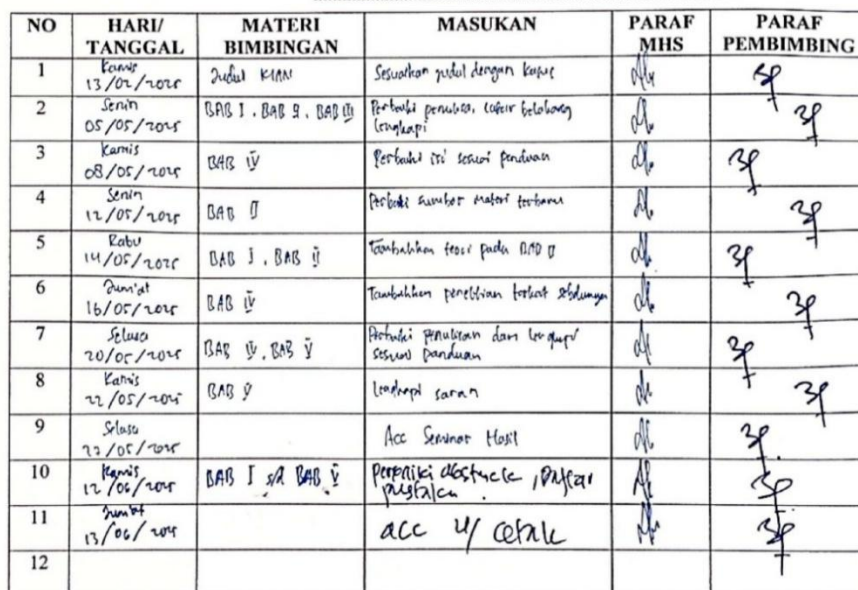 NO HARI/ TANGGAL MATERI BIMBINGAN MASUKAN PARAF MHS PARAF PEMBIMBING
1 Kamis 13/02/2025 Judul KIAN Sesuaikan judul dengan kasus
2 Senin 05/05/2025 BAB I, BAB II, BAB III Perbaiki penulisan, latar belakang lengkapi
3 Kamis 08/05/2025 BAB IV Perbaiki isi sesuai panduan
4 Senin 12/05/2025 BAB II Perbaiki sumber materi terbaru
5 Rabu 14/05/2025 BAB I, BAB II Tambahkan teori pada BAB II
6 Jum'at 16/05/2025 BAB IV Tambahkan penelitian terkait sebelumnya
7 Selasa 20/05/2025 BAB IV, BAB V Perbaiki penulisan dan lengkapi sesuai panduan
8 Kamis 22/05/2025 BAB V Lengkapi saran
9 Selasa 27/05/2025 Acc Seminar Hasil
10 Kamis 12/06/2025 BAB I s/d BAB V Perbaiki abstrack, Daftar pustaka.
11 Jum'at 13/06/2025 acc u/ cetak
12